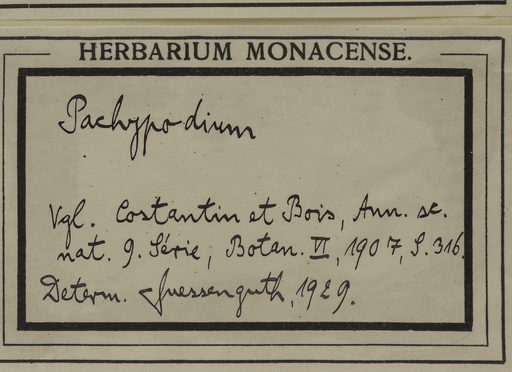 HERBARIUM MONACENSE.
Pachypodium
Vgl. Costantin et Bois, Ann. sc.
nat. 9. Série, Botan. VI, 1907, S. 316.
Determ. Suessenguth, 1929.